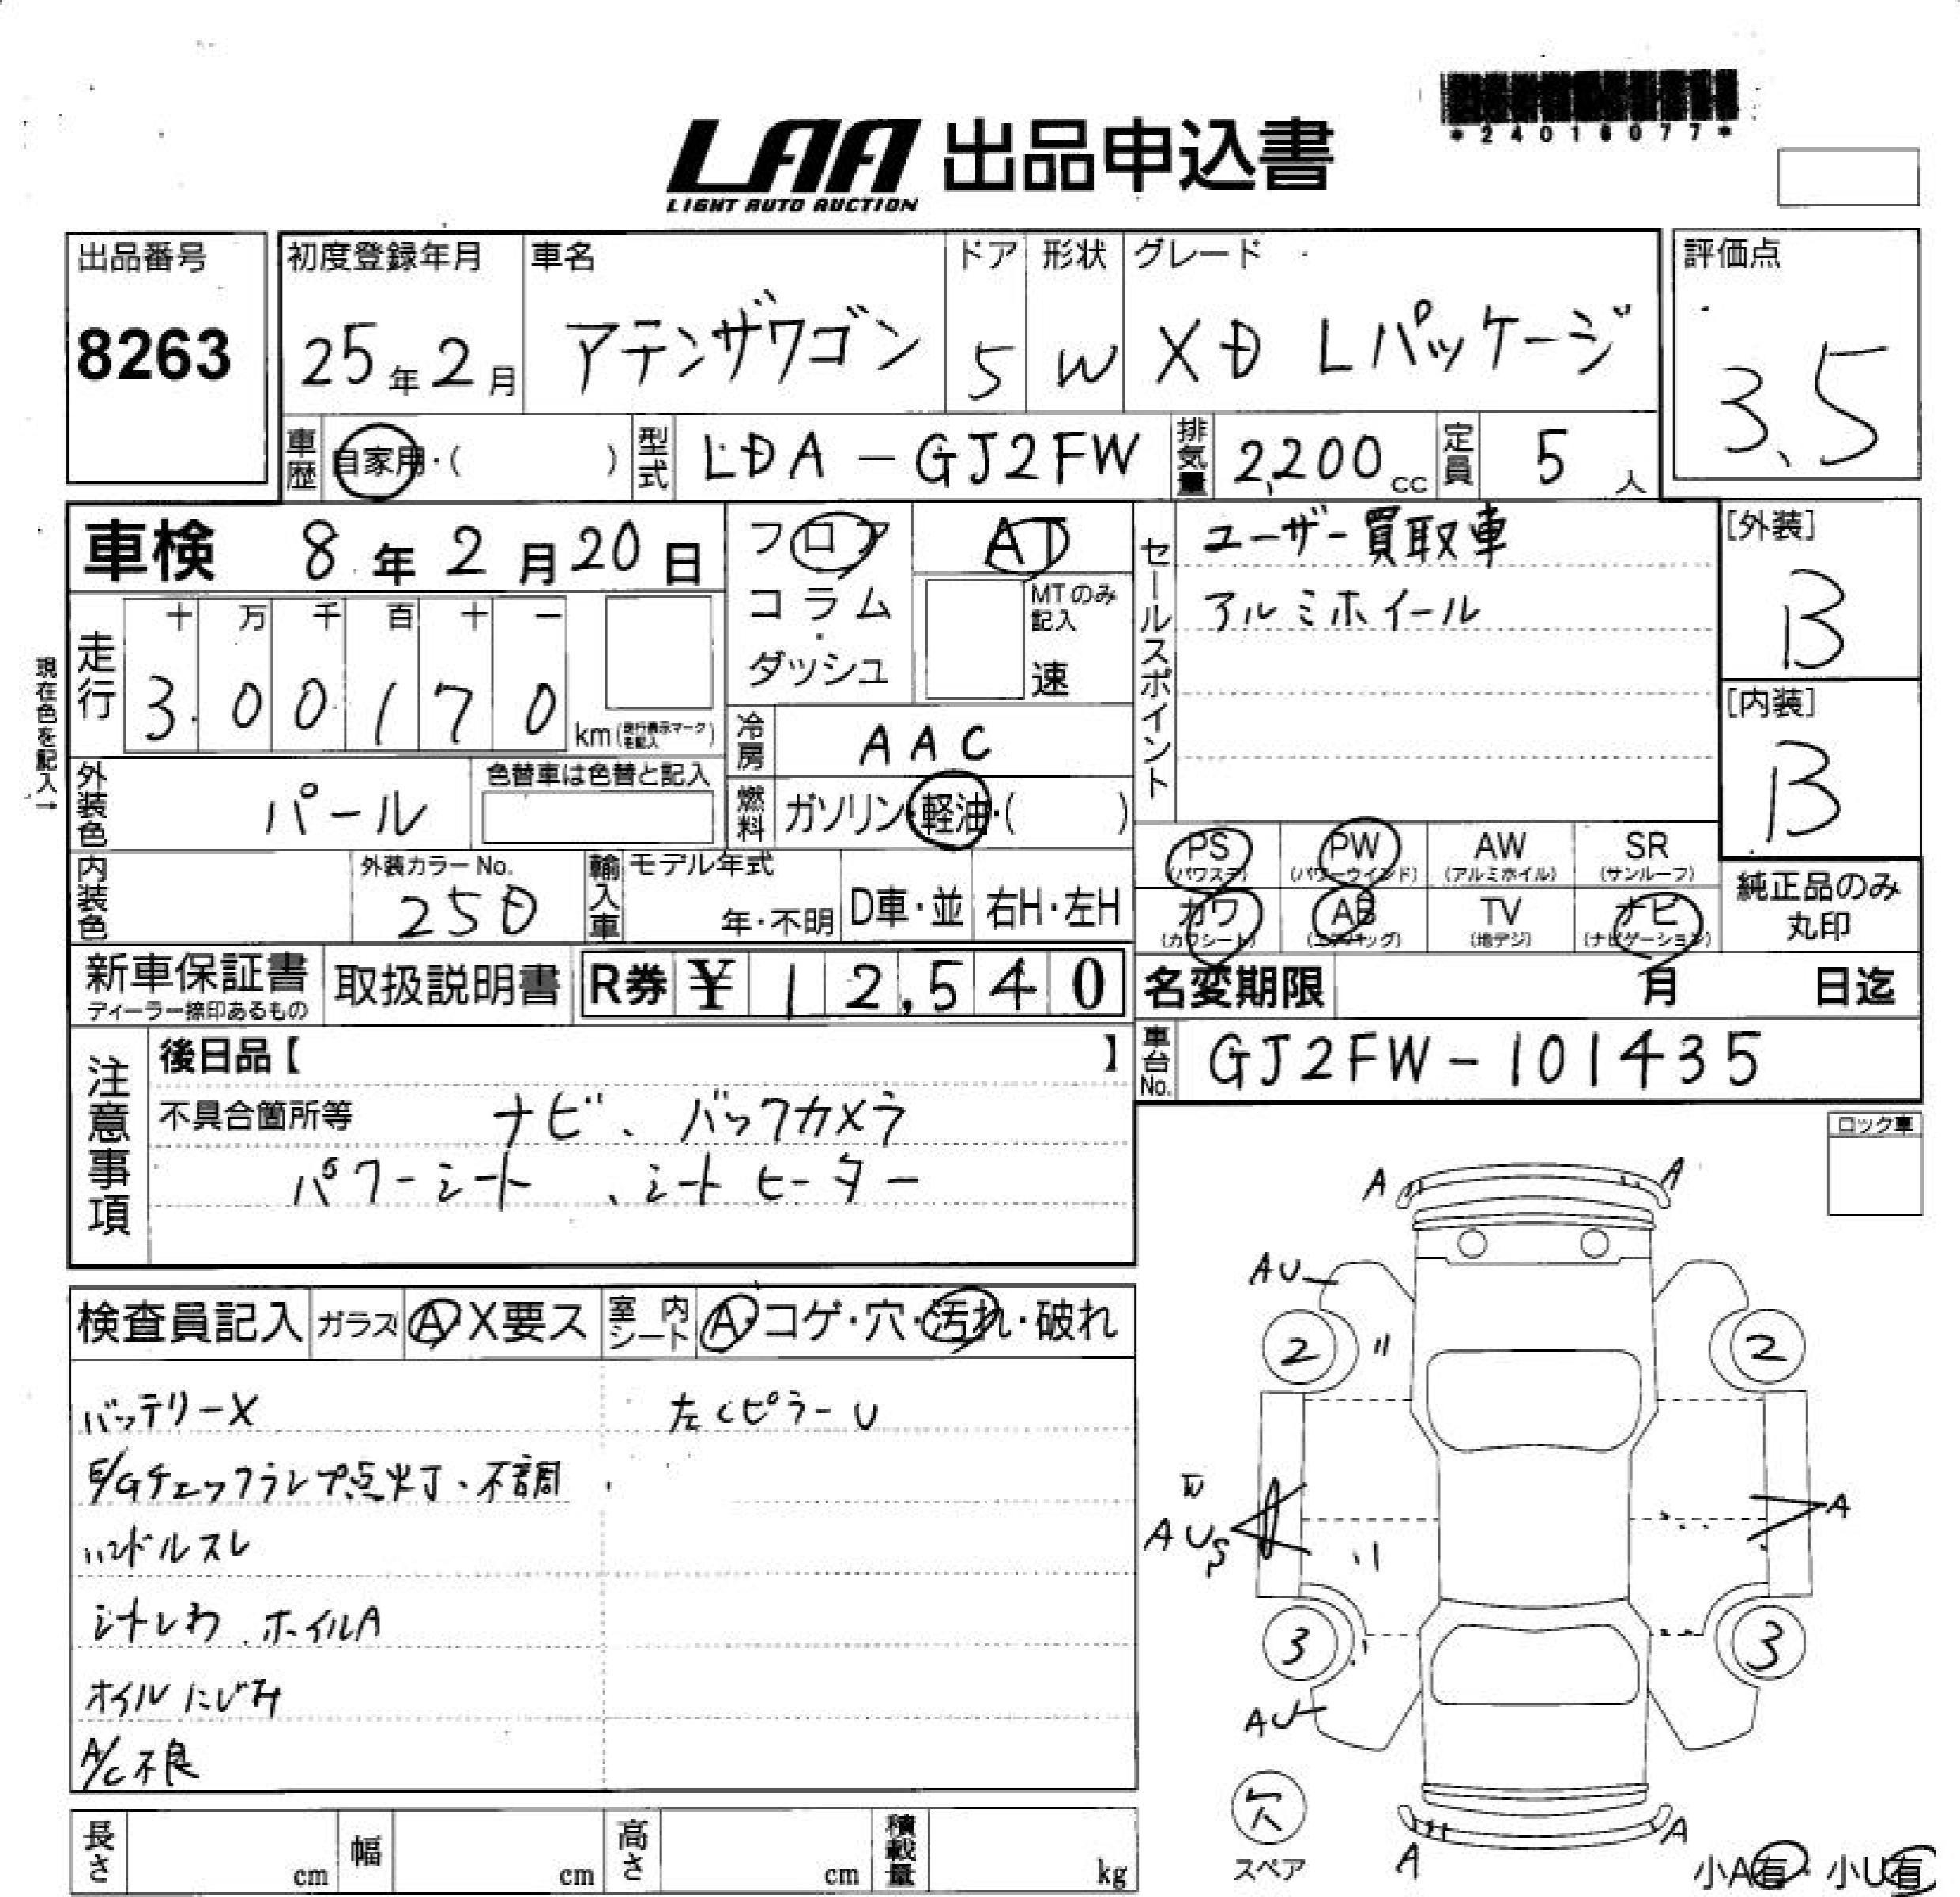 *24016077*
LAA 出品申込書
LIGHT AUTO AUCTION
出品番号
8263
初度登録年月
25年2月
車名
アテンザワゴン
ドア
5
形状
W
グレード
XD Lパッケージ
評価点
3.5
車歴 自家用・( )
型式 LDA-GJ2FW
排気量 2,200cc
定員 5人
車検 8年2月20日
フロア
コラム
・
ダッシュ
AT
MTのみ記入
速
セールスポイント
ユーザー買取車
アルミホイール
[外装]
B
[内装]
B
現在色を記入→
走行
十 万 千 百 十 一
3 0 0 1 7 0 km(走行表示マークを記入)
冷房 AAC
燃料 ガソリン・軽油・( )
外装色 パール
色替車は色替と記入
内装色
外装カラーNo.
25D
輸入車
モデル年式
年・不明
D車・並
右H・左H
PS (パワステ)
PW (パワーウインド)
AW (アルミホイル)
SR (サンルーフ)
カワ (カワシート)
AB (エアバッグ)
TV (地デジ)
ナビ (ナビゲーション)
純正品のみ
丸印
新車保証書
ディーラー捺印あるもの
取扱説明書
R券 ¥ 12,540
名変期限 月 日迄
車台No. GJ2FW-101435
注意事項
後日品【 】
不具合箇所等 ナビ、バックカメラ
パワーシート、シートヒーター
ロック車
検査員記入
ガラス A X要ス
室内シート A・コゲ・穴・汚れ・破れ
バッテリーX
左CピラーU
E/Gチェックランプ点灯、不調
ハンドルスレ
シートしわ、ホイルA
オイルにじみ
A/C不良
A A
AU
2 2
W
AUS
A
3 3
AU
穴
スペア
A A
小A有・小U有
長さ cm
幅 cm
高さ cm
積載量 kg